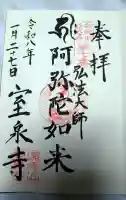 奉拝
弘法大師
阿弥陀如来
令和八年
一月二十七日
室泉寺